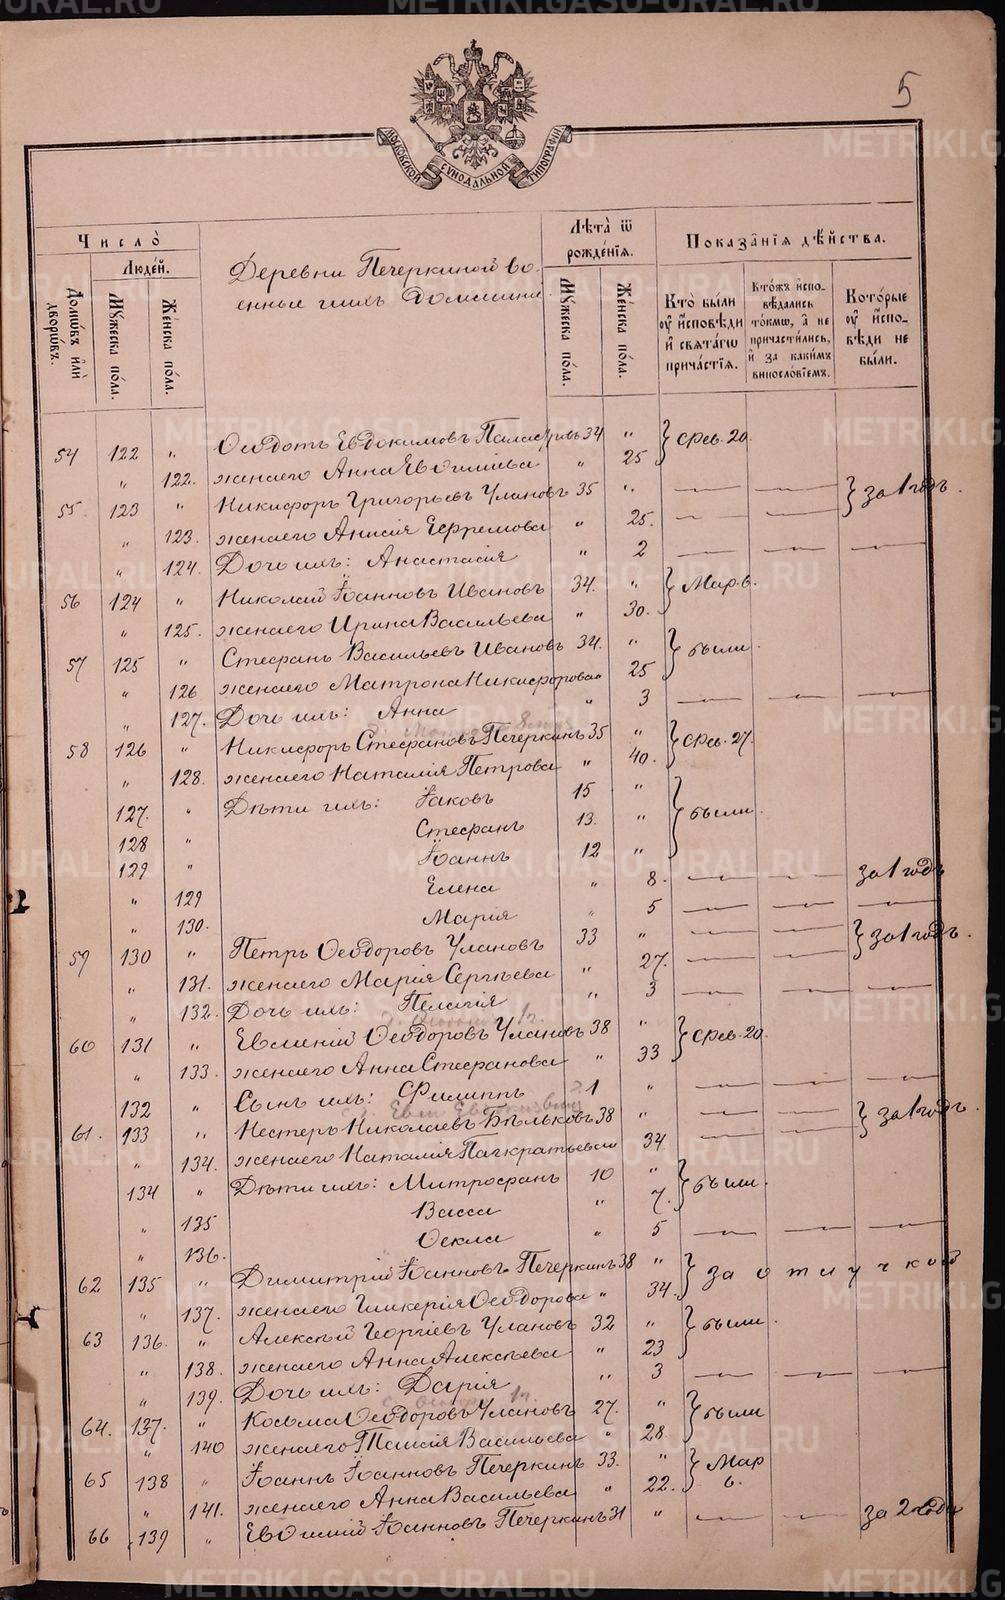 5
МОСКОВСКОЙ СѴНОДАЛЬНОЙ ТИПОГРАФІИ
Число̀
Людей.
Домѡвъ или дворѡвъ.
Мꙋжеска пола.
Женска пола.
Деревни Печеркиной во-
енные и ихъ домашніе
Лѣта ѿ рожденїѧ.
Мꙋжеска пола.
Женска пола.
Показанїѧ дѣйства.
Кто были ꙋ исповѣди и свѧтагѡ причастїѧ.
Ктожъ исповѣдались токмѡ, а не причастились, и за какимъ винословїемъ.
Которые ꙋ исповѣди не были.
54 122 " Ѳеодотъ Евдокимовъ 34 " Фев. 20.
" 122. жена его Анна Евѳиміева " 25
55. 123 " Никифоръ Григорьевъ Улановъ 35 " за 1 годъ.
" 123. жена его Анисія Ефремова " 25.
" 124. Дочь ихъ: Анастасія " 2
56 124 " Николай Іоанновъ Ивановъ 34. " Мар. 6.
" 125. жена его Ирина Васильева " 30.
57 125 " Стефанъ Васильевъ Ивановъ 34. " были.
" 126 жена его Матрона Никифорова " 25
" 127. Дочь ихъ: Анна " 3
58 126 " Никифоръ Стефановъ Печеркинъ 35 " Фев. 27.
" 128. жена его Наталія Петрова " 40.
127. " Дѣти ихъ: Іаковъ 15 " были.
128 " Стефанъ 13. "
129 " Іоаннъ 12 "
" 129 Елена " 8. за 1 годъ
" 130. Марія " 5
59 130 " Петръ Ѳеодоровъ Улановъ 33 " за 1 годъ.
" 131. жена его Марія Сергѣева " 27.
" 132. Дочь ихъ: Пелагія " 3
60 131 " Евменій Ѳеодоровъ Улановъ 38 " Фев. 20.
" 133. жена его Анна Стефанова " 33
132 " Сынъ ихъ: Филиппъ 1 "
61. 133 " Нестеръ Николаевъ Бѣльковъ 38 " за 1 годъ.
" 134. жена его Наталія Панкратьева 34
134 " Дѣти ихъ: Митрофанъ 10 " были.
" 135 Васса " 7.
" 136. Ѳекла " 5
62 135 " Димитрій Іоанновъ Печеркинъ 38 " за отлучкой
" 137. жена его Гликерія Ѳеодорова " 34.
63 136. " Алексѣй Георгіевъ Улановъ 32 " были.
" 138. жена его Анна Алексѣева " 23
" 139. Дочь ихъ: Дарія " 3
64. 137. " Косьма Ѳеодоровъ Улановъ 27. " были
" 140 жена его Таисія Васильева " 28.
65 138 " Іоаннъ Іоанновъ Печеркинъ 33. " Мар 6.
" 141. жена его Анна Васильева " 22.
66 139 " Евѳимій Іоанновъ Печеркинъ 31 " за 2 года
METRIKI.GASO-URAL.RU